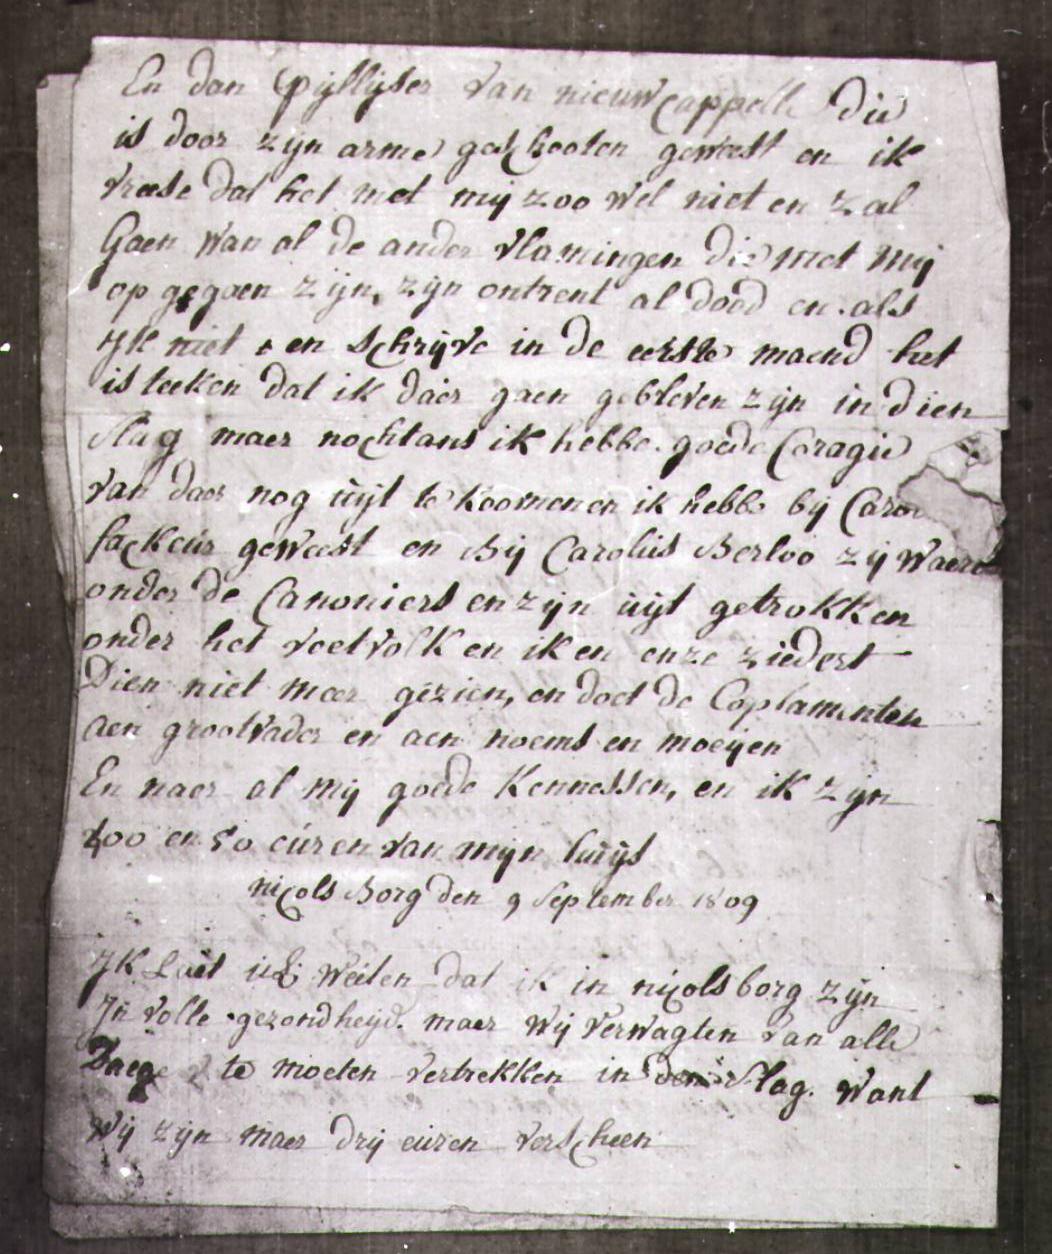 En dan pijllijser van nieuwcappelle die
is door zijn arme geschooten geweest en ik
vreese dat het met mij zoo wel niet en zal
Gaen wan al de ander vlamingen die met mij
op gegaen zijn, zijn ontrent al dood en als
IJk niet en schrijve in de eerste maend het
is teeken dat ik daer gaen gebleven zijn in dien
slag maer nochtans ik hebbe goede Coragie
van daer nog uijt te koomen en ik hebbe bij
fackeur geweest en Bij Carolus Berloo zij waere
onder de Canoniers en zijn uijt getrokken
onder het voetvolk en ik en enze ziedert
Dien niet meer gezien, en doet de Coplamenten
aen grootvader en aen noems en moeijen
En naer al mij goede Kennessen, en ik zijn
400 en 50 euren van mijn huijs
nicols Borg den 9 September 1809
IJK Laet uE Weeten dat ik in nicolsborg zijn
In volle gezondheijd maer wij verwagten van alle
Daege te moeten vertrekken in den slag. want
Wij zijn maer drij euren verscheen